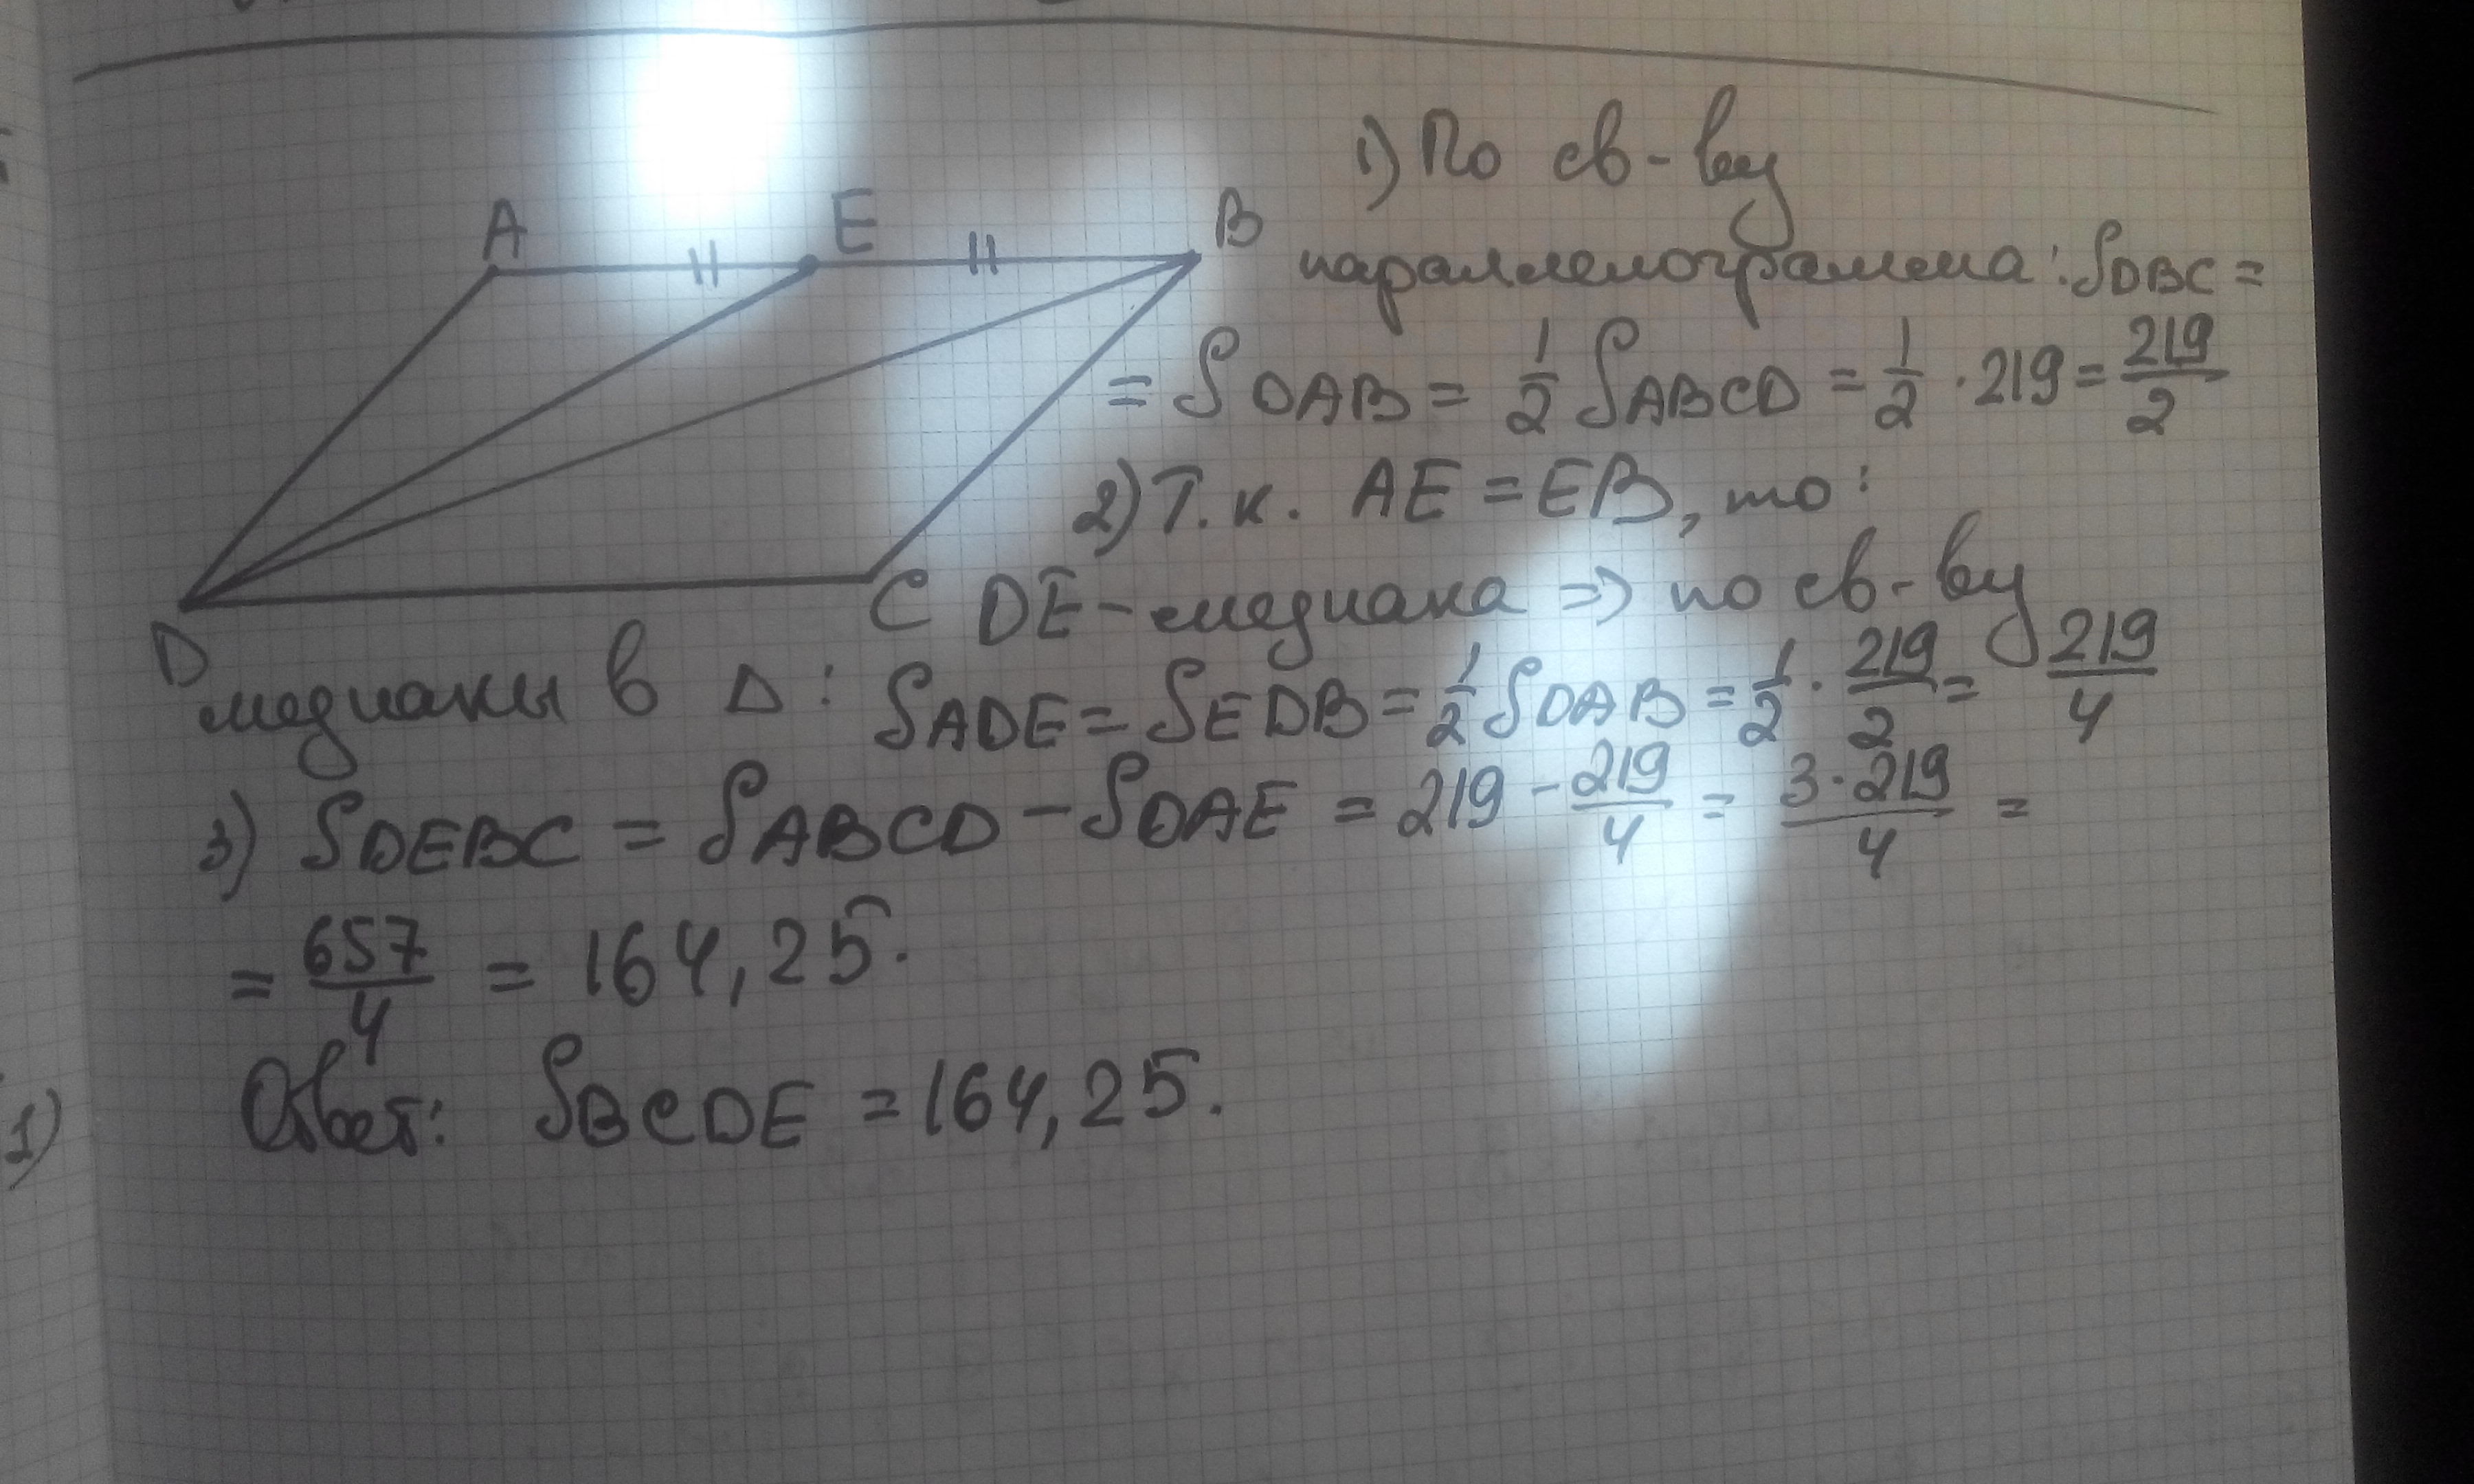 1) По св-ву
A E B
параллелограмма: SDBC =
= SDAB = 1/2 SABCD = 1/2 · 219 = 219/2
2) Т.к. AE = EB, то:
D C DE - медиана => по св-ву
медианы в Δ: SADE = SEDB = 1/2 SDAB = 1/2 · 219/2 = 219/4
3) SDEBC = SABCD - SDAE = 219 - 219/4 = 3·219/4 =
= 657/4 = 164,25.
Ответ: SBCDE = 164,25.
1)